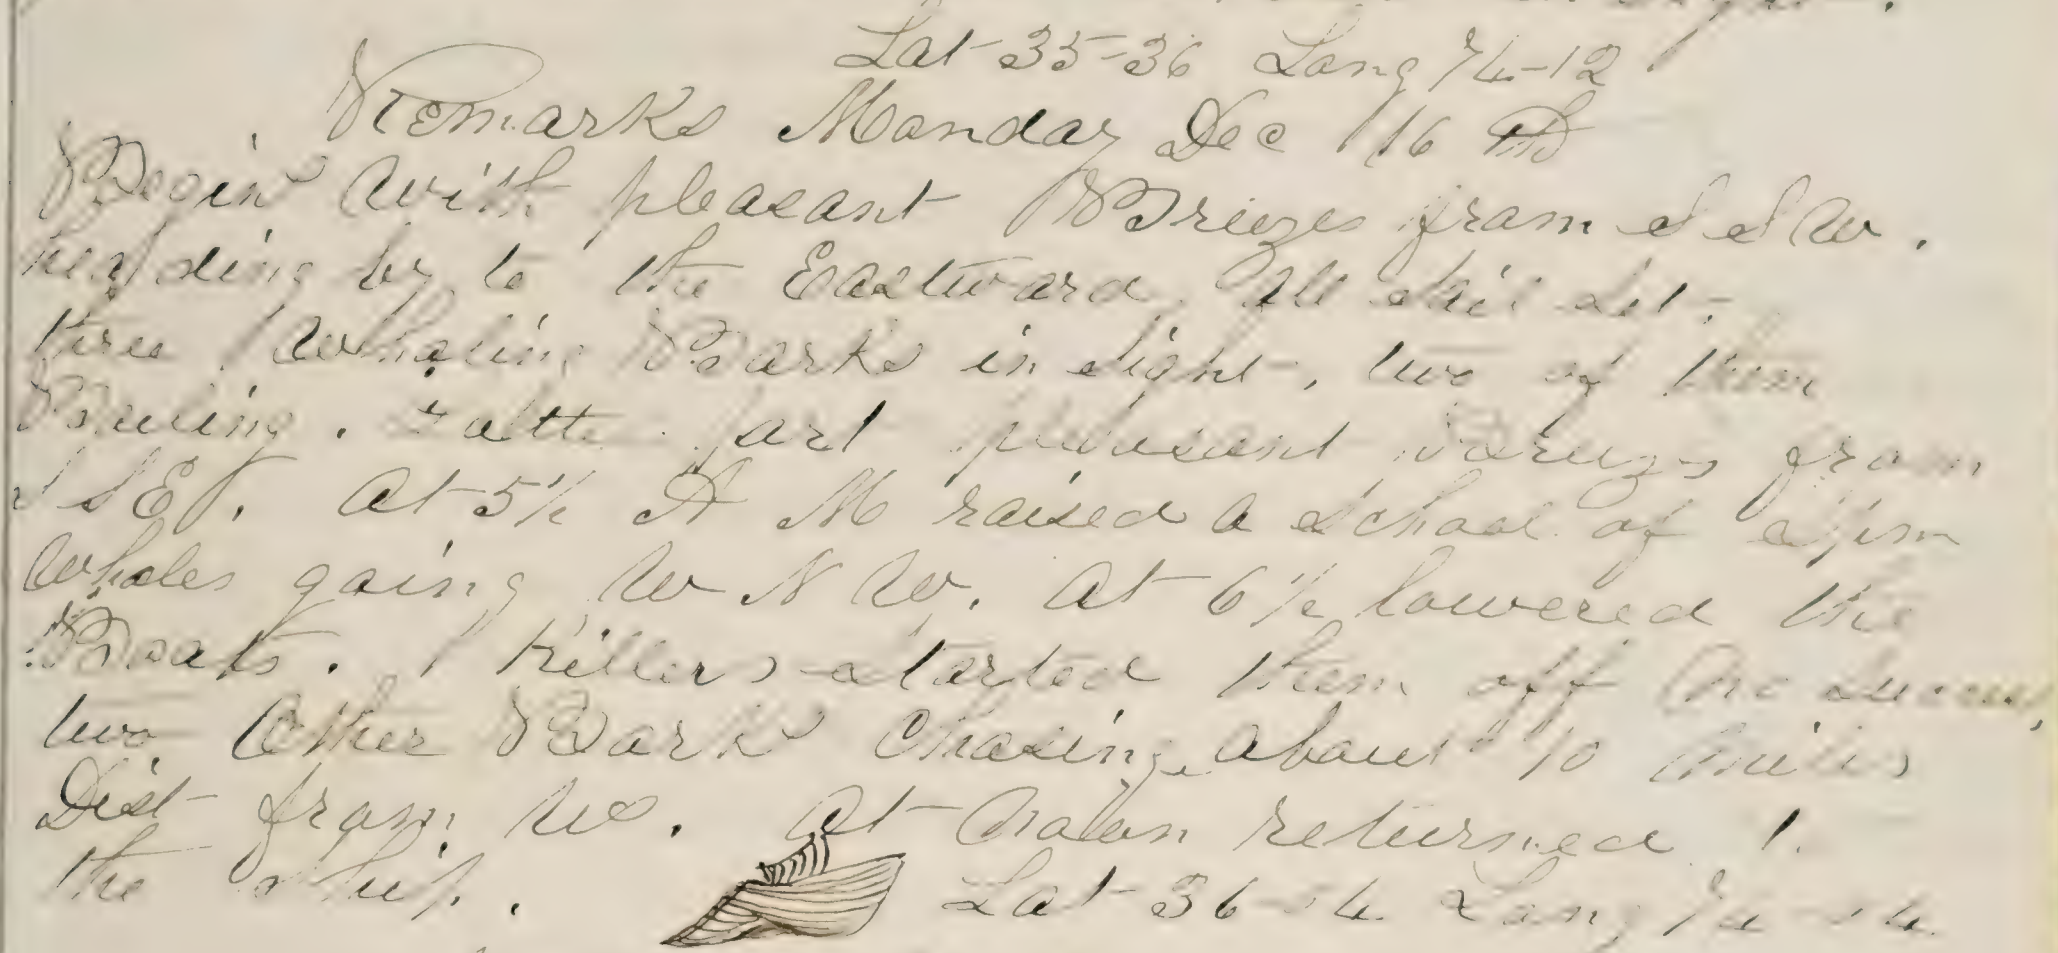 Lat 35-36 Long 74-12
Remarks Monday Dec 16 th
Begins with pleasant Briezes from S S W.
heading by to the Eastward all sail set.
three Whaling Barks in sight, two of them
Boiling. Latter part pleasant Briezes from
S S E. At 5 1/2 A M raised a School of Spirm
Whales going W N W. At 6 1/2 lowered the
Boats. Killers started them off no success,
two Other Barks Chasing about 10 miles
Dist from us. At noon returned t.
the Ship. Lat 36-14 Long